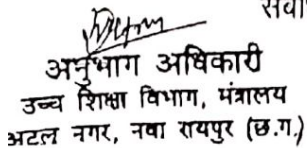 सर्वा
अनुभाग अधिकारी
उच्च शिक्षा विभाग, मंत्रालय
अटल नगर, नवा रायपुर (छ.ग.)